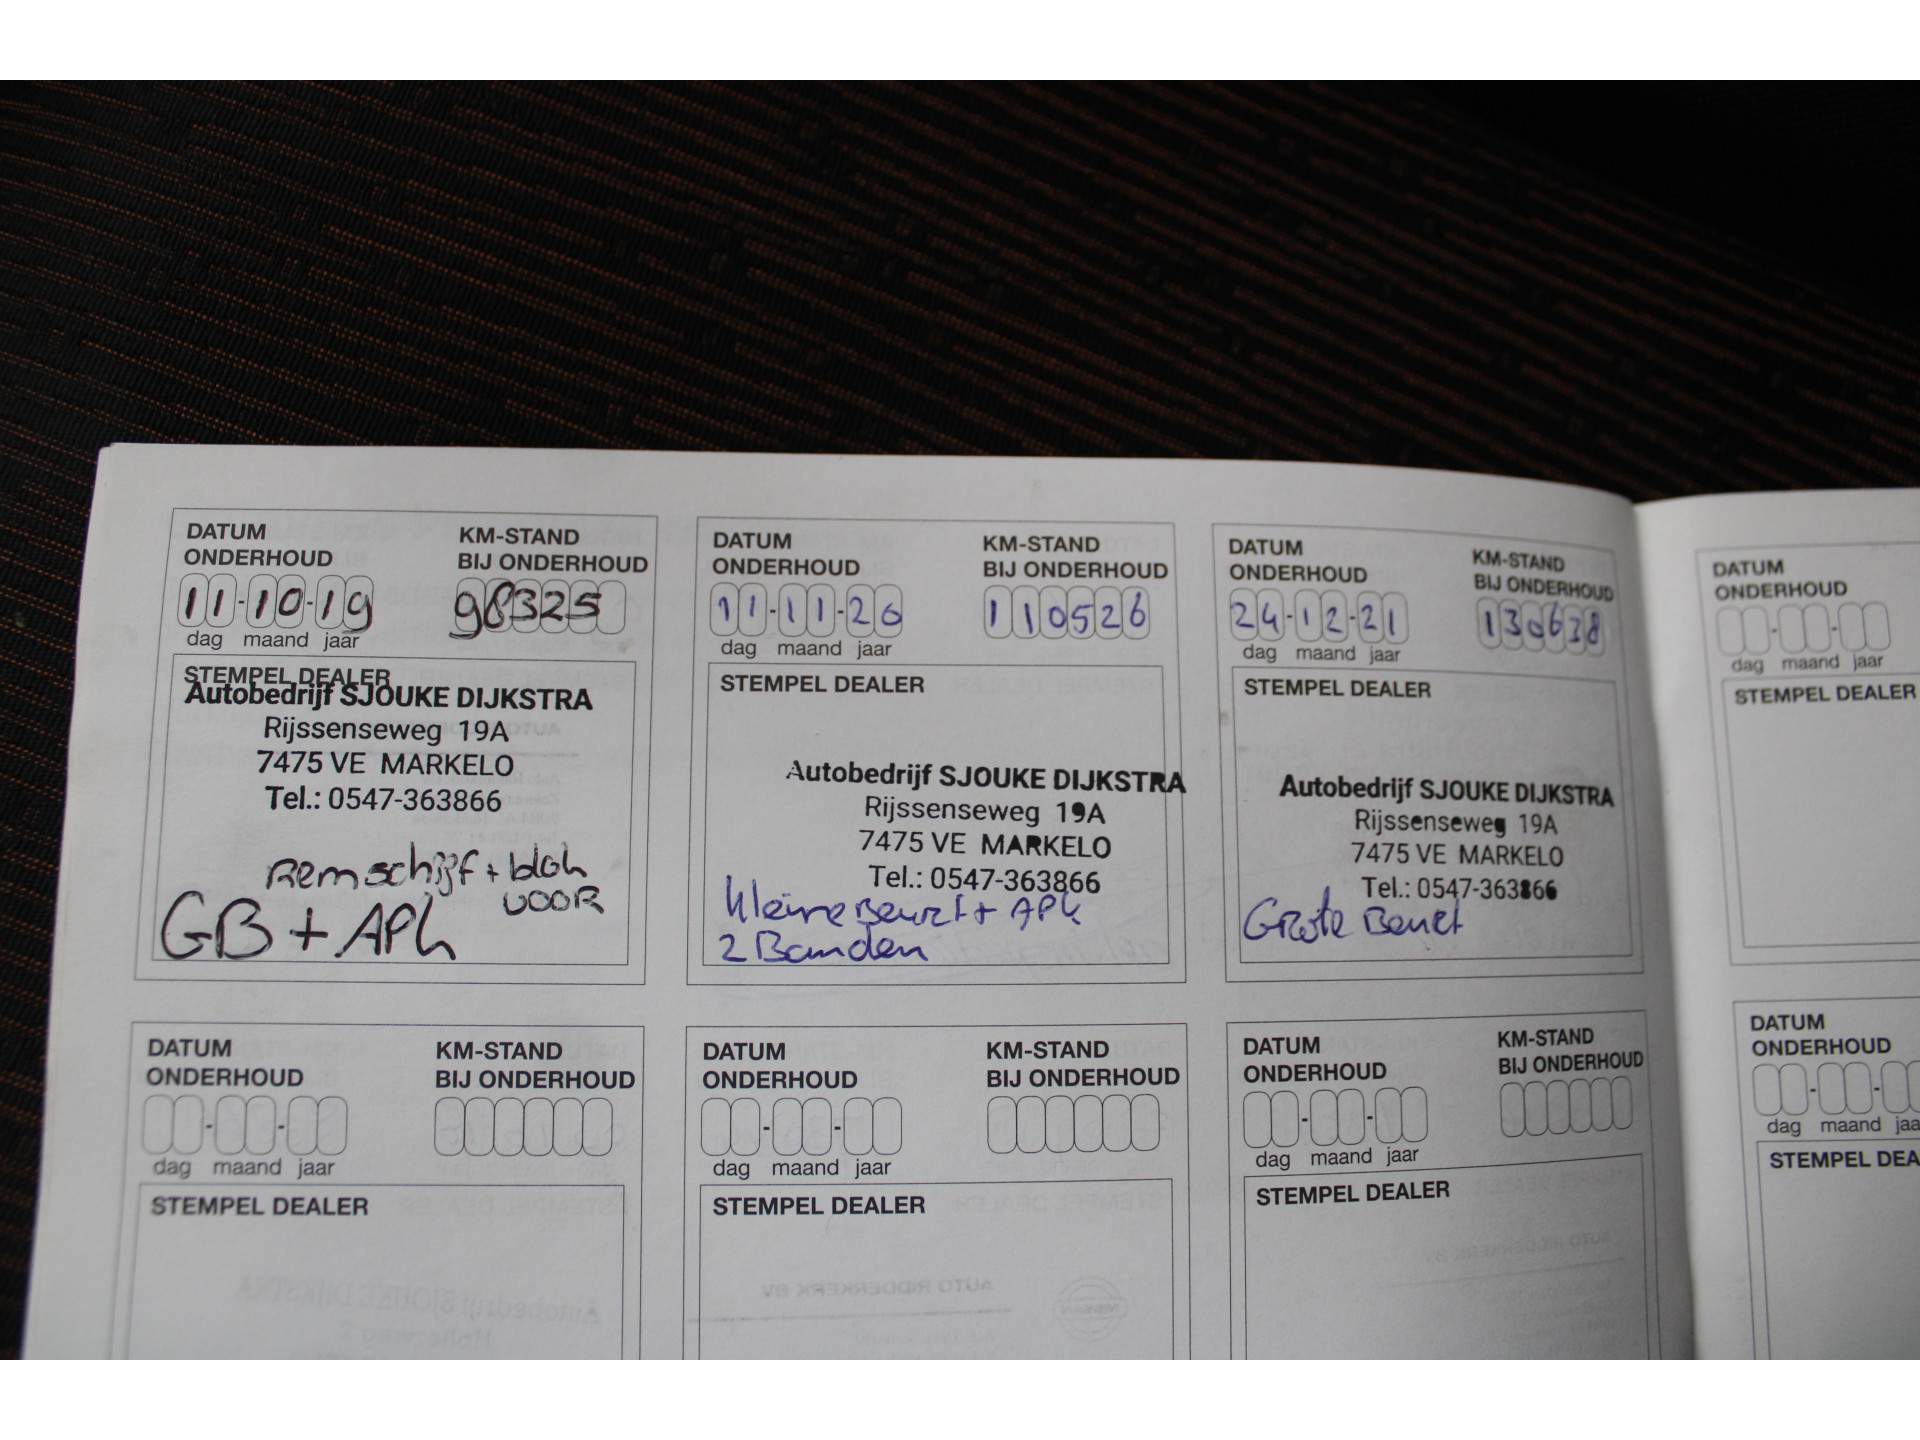 DATUM
ONDERHOUD
KM-STAND
BIJ ONDERHOUD
11-10-19
98325
dag maand jaar
STEMPEL DEALER
Autobedrijf SJOUKE DIJKSTRA
Rijssenseweg 19A
7475 VE MARKELO
Tel.: 0547-363866
Remschijf + blok
VOOR
GB + APk
DATUM
ONDERHOUD
KM-STAND
BIJ ONDERHOUD
11-11-20
110526
dag maand jaar
STEMPEL DEALER
Autobedrijf SJOUKE DIJKSTRA
Rijssenseweg 19A
7475 VE MARKELO
Tel.: 0547-363866
kleine Beurt + APk
2 Banden
DATUM
ONDERHOUD
KM-STAND
BIJ ONDERHOUD
24-12-21
130638
dag maand jaar
STEMPEL DEALER
Autobedrijf SJOUKE DIJKSTRA
Rijssenseweg 19A
7475 VE MARKELO
Tel.: 0547-363866
Grote Beurt
DATUM
ONDERHOUD
dag maand jaar
STEMPEL DEALER
DATUM
ONDERHOUD
KM-STAND
BIJ ONDERHOUD
dag maand jaar
STEMPEL DEALER
DATUM
ONDERHOUD
KM-STAND
BIJ ONDERHOUD
dag maand jaar
STEMPEL DEALER
DATUM
ONDERHOUD
KM-STAND
BIJ ONDERHOUD
dag maand jaar
STEMPEL DEALER
DATUM
ONDERHOUD
dag maand jaa
STEMPEL DEA